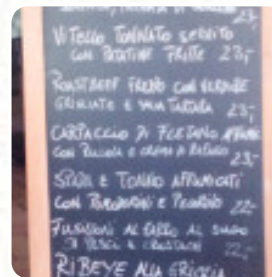 23,-
VITELLO TONNATO SERVITO
CON PATATINE FRITTE 23,-
ROASTBEEF FREDDO CON VERDURE
GRIGLIATE E SALSA TARTARA 23,-
CARPACCIO DI
CON RUCOLA E CREMA DI 23,-
SPADA E TONNO AFFUMICATI
CON POMODORINI E PECORINO 22,-
AL SUGO
DI PESCE E CROSTACEI 22,-
RIBEYE ALLA GRIGLIA